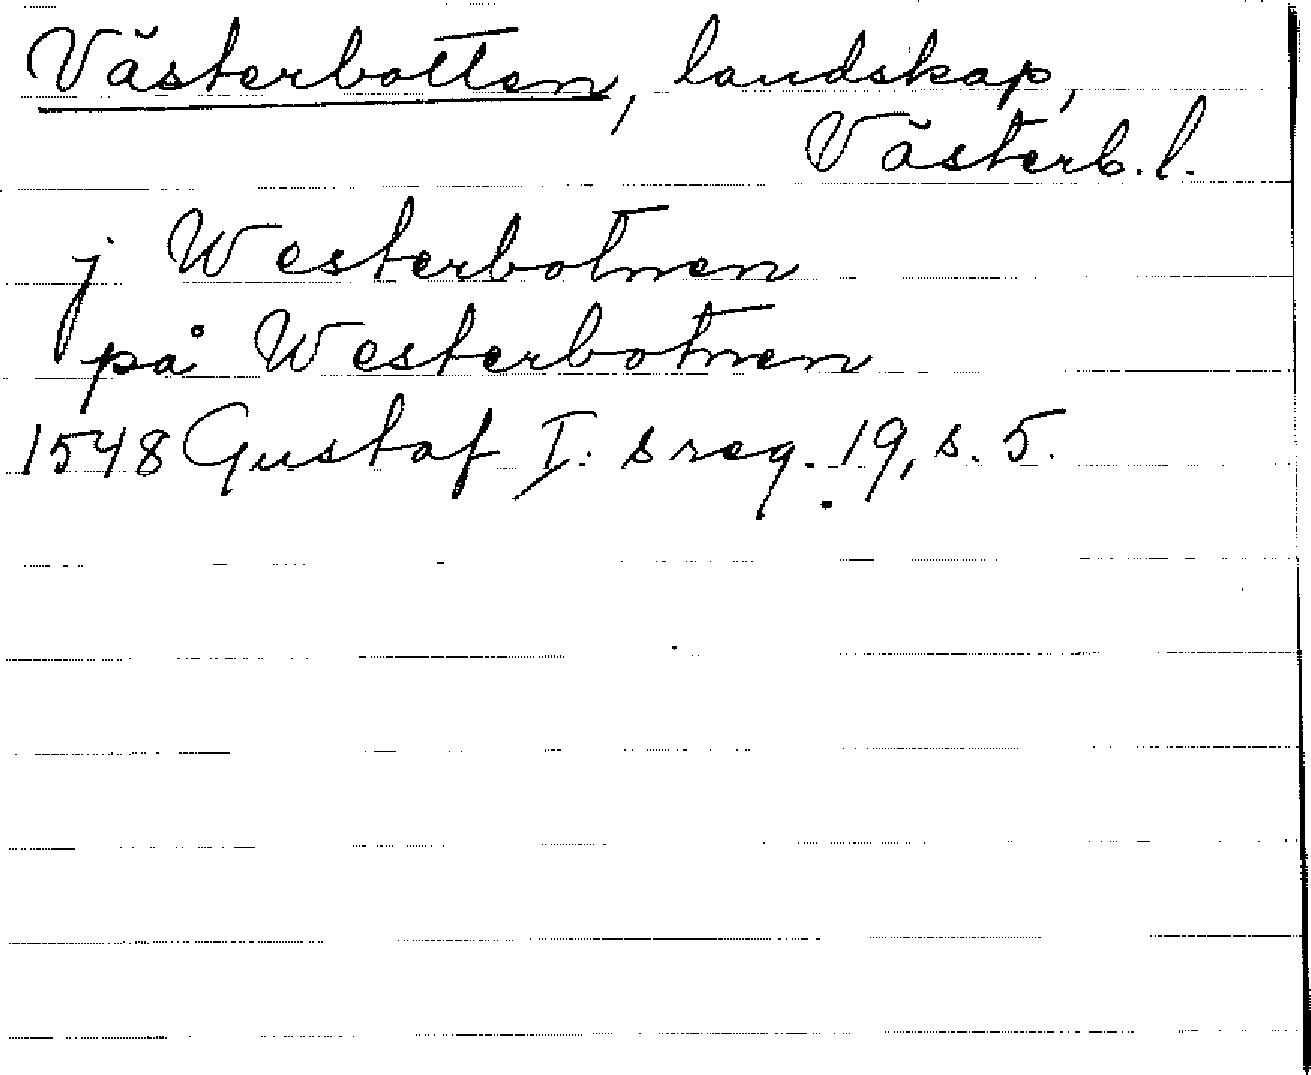 Västerbotten, landskap,
Västerb. l.
j Westerbotnen
på Westerbotnen
1548 Gustaf I:s reg. 19, s. 5.